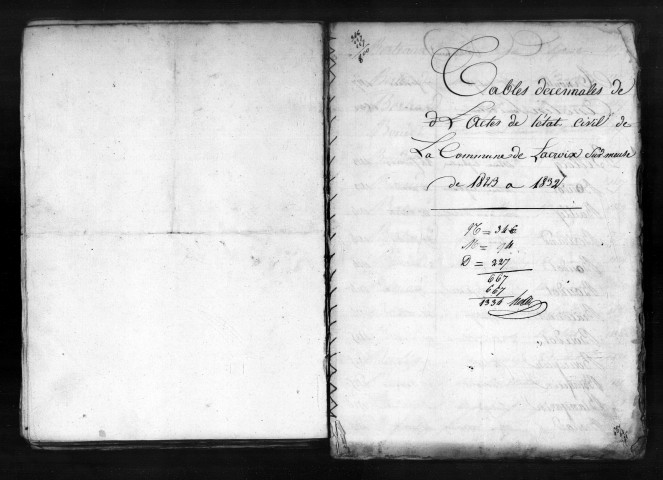 Tables decennales de
d L'actes de l'état civil de
La Commune de Lacroix Sur meuse
de 1823 a 1832
N = 346
M = 94
D = 227
667
667
1334